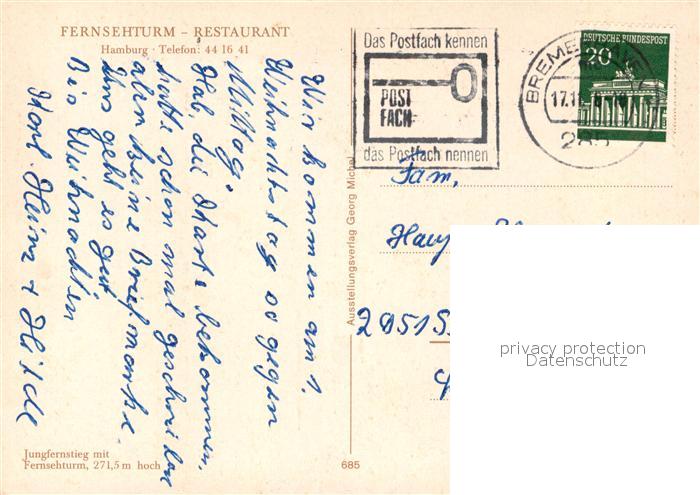 FERNSEHTURM – RESTAURANT
Hamburg · Telefon: 44 16 41
Wir kommen am 1.
Weihnachtstag so gegen
Mittag.
Hab die Karte bekommen,
hatte schon mal geschrieben
aber keine Briefmarke.
Uns geht es gut
Bis Weihnachten
Karl-Heinz + Hilde
Jungfernstieg mit
Fernsehturm, 271,5 m hoch
685
Ausstellungsverlag Georg Michel
Das Postfach kennen
POST
FACH
das Postfach nennen
BREMERHAVEN
17.11
285
DEUTSCHE BUNDESPOST
20
Fam.
2851
privacy protection
Datenschutz